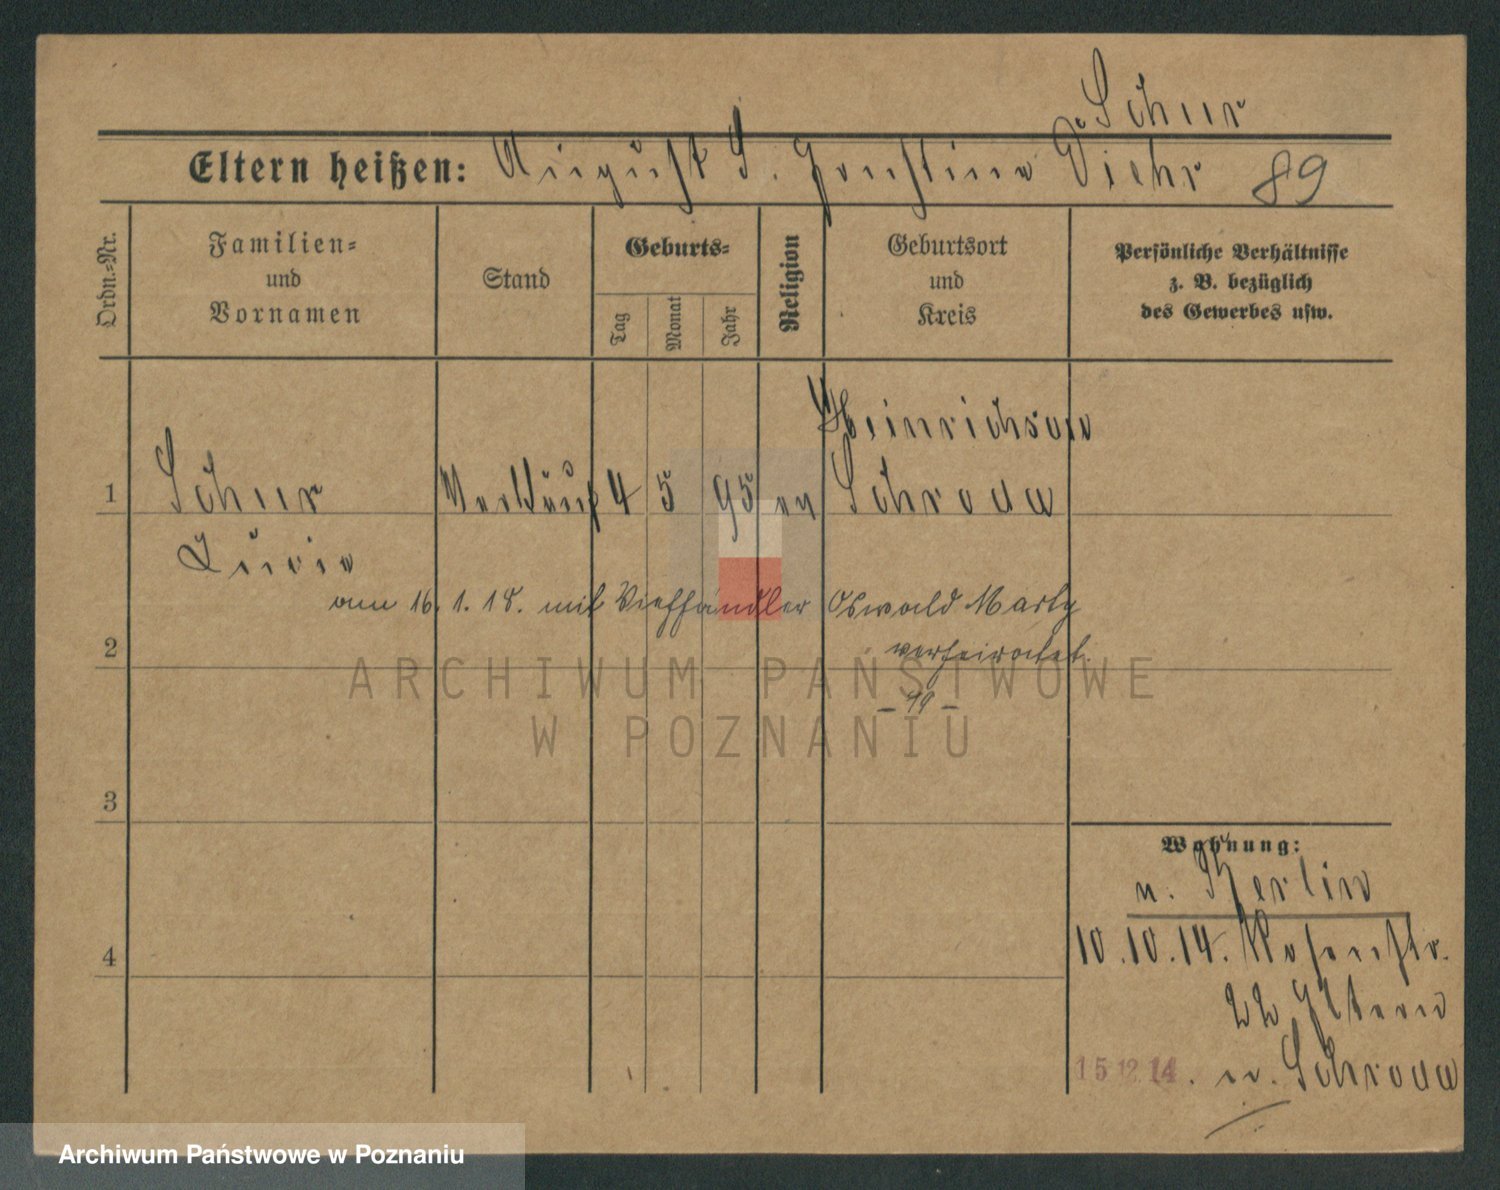 Schur
Eltern heißen: August S. Ernstine Diehr 89
Ordn.=Nr.
Familien=
und
Vornamen
Stand
Geburts=
Tag
Monat
Jahr
Religion
Geburtsort
und
Kreis
Persönliche Verhältnisse
z. B. bezüglich
des Gewerbes usw.
Heinrichsau
1 Schur Verkäuf 4 5 95 ev Schroda
Lucie
am 16.1.18. mit Viehhändler Oswald Marly
verheiratet.
2
– 19 –
ARCHIWUM PAŃSTWOWE
W POZNANIU
3
Wohnung:
n. Berlin
10.10.14. Rosenstr.
22 Eltern
4
15 12 14. n. Schroda
Archiwum Państwowe w Poznaniu